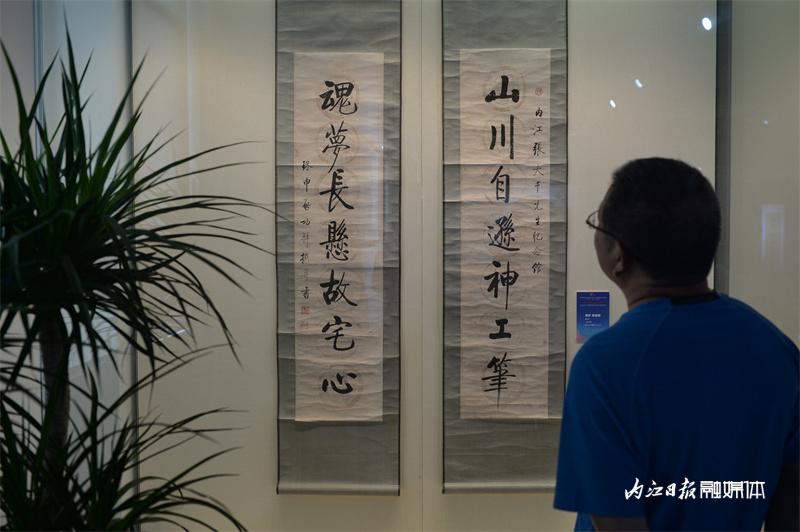 山川自遜神工筆
内江張大千先生紀念館
魂夢長懸故宅心
内江日报融媒体